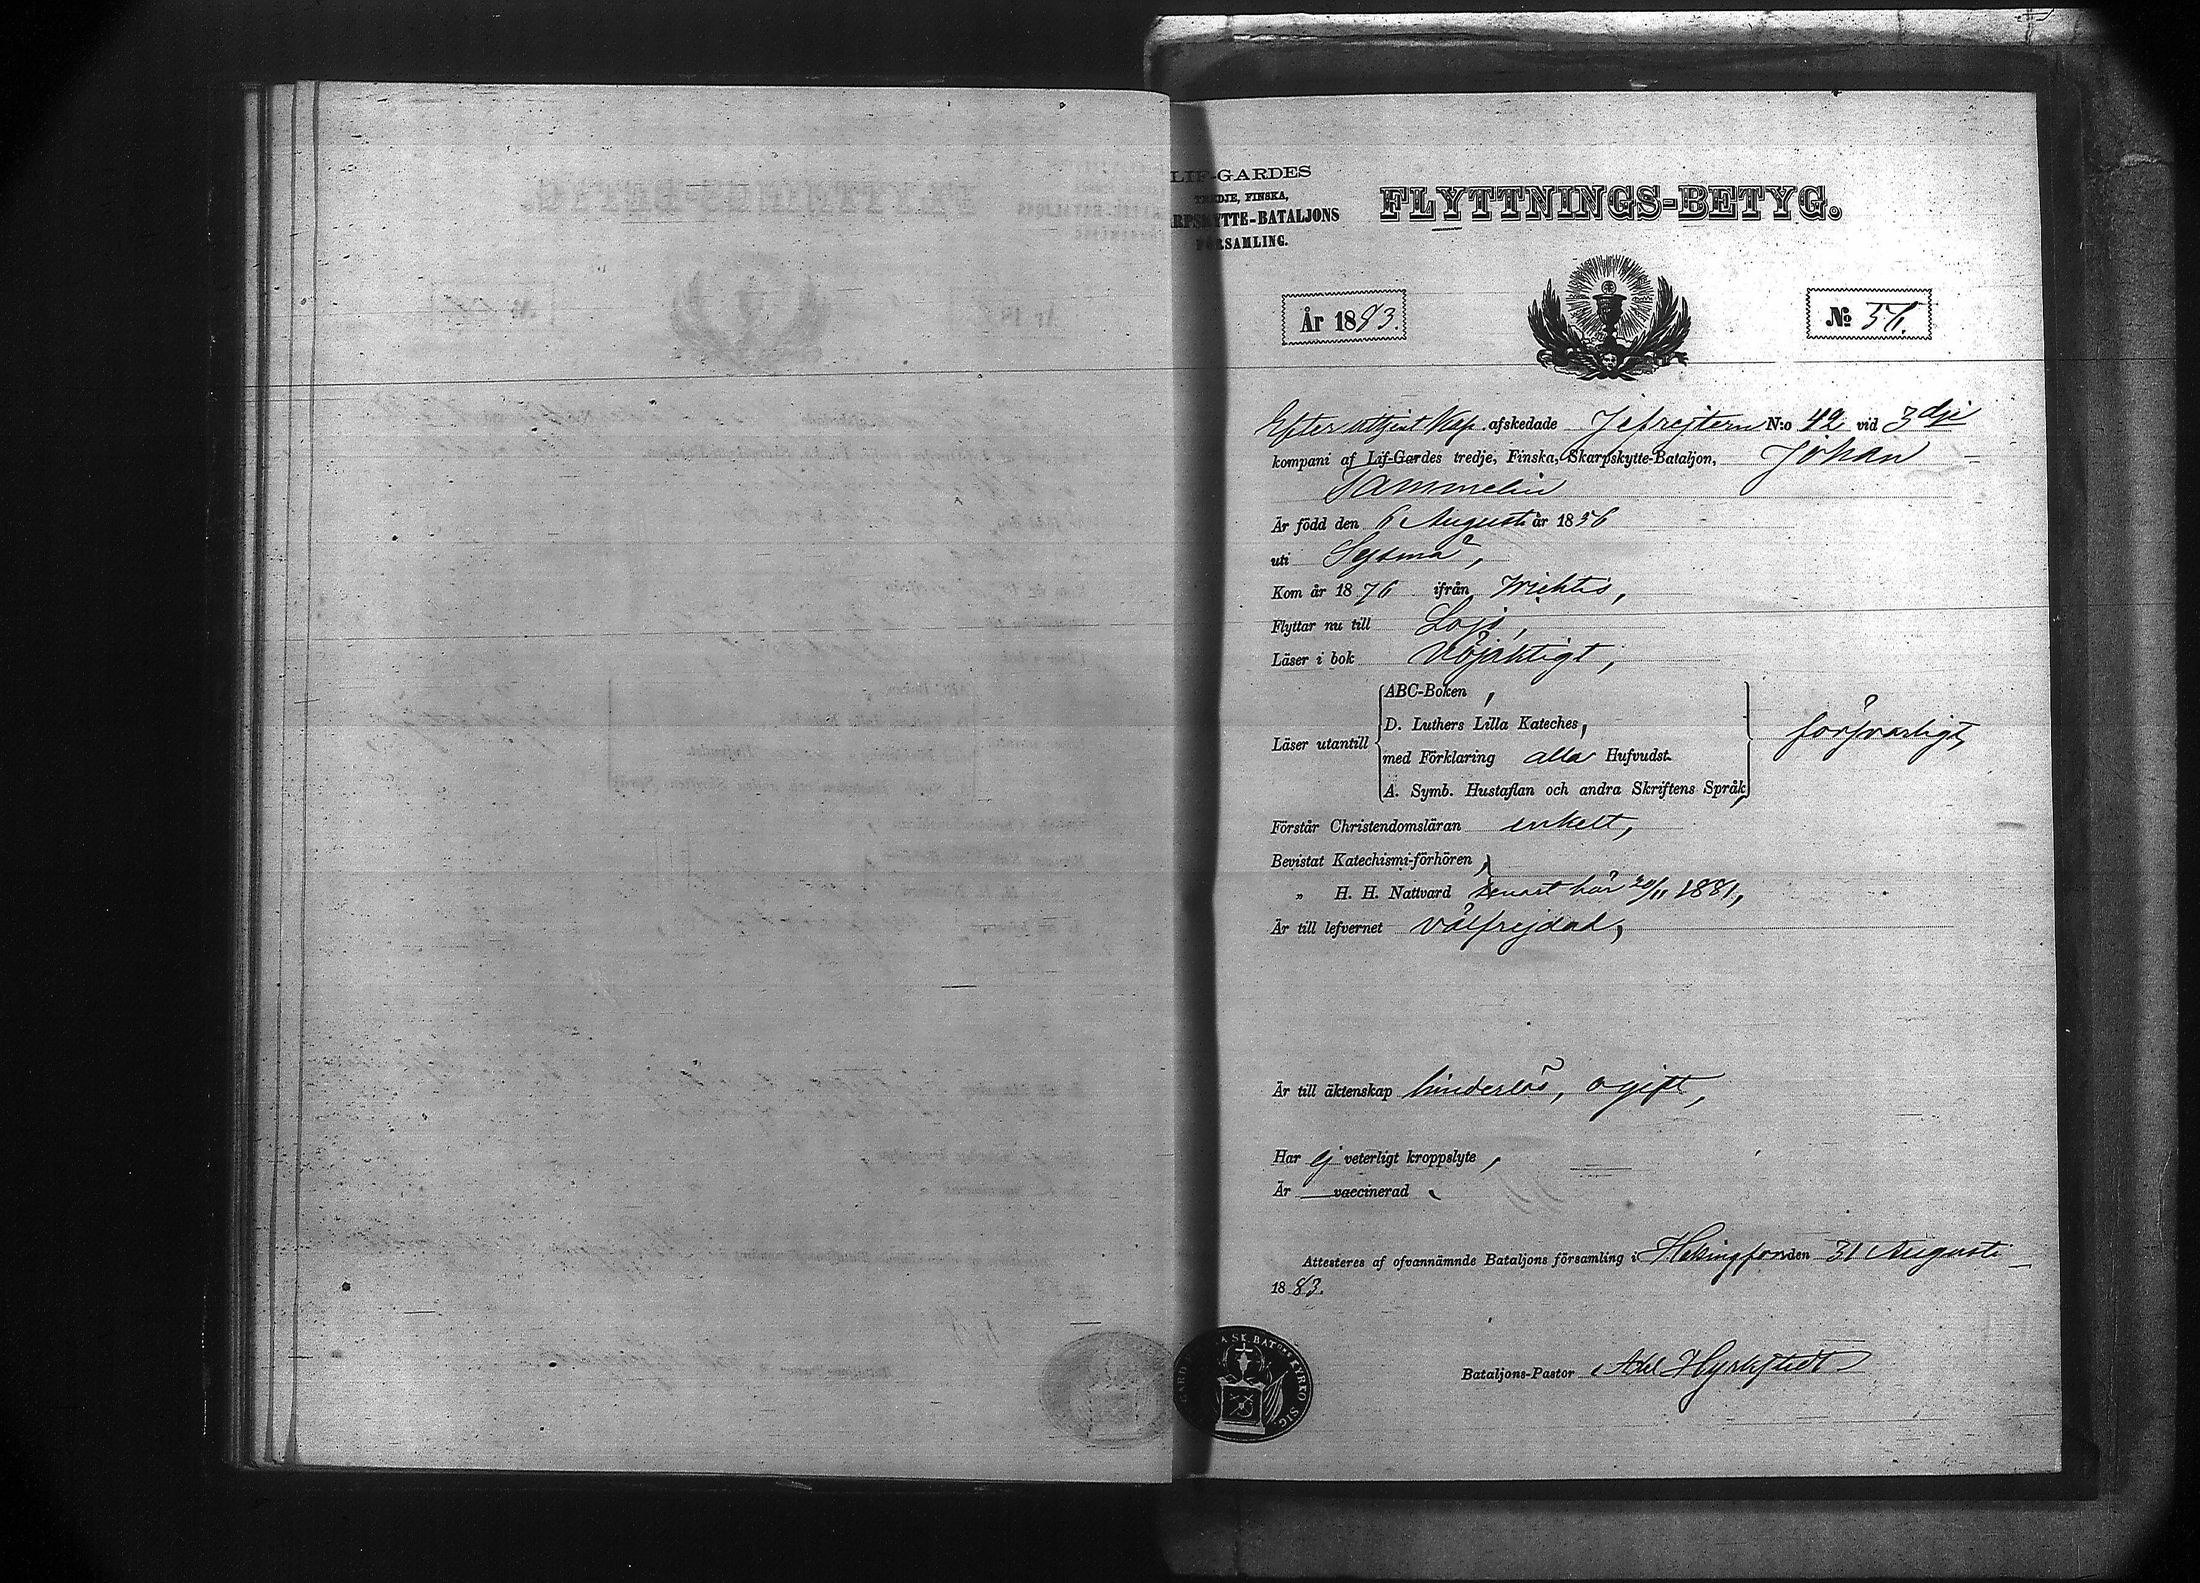 LIF-GARDES
TREDJE, FINSKA,
RPSKYTTE-BATALJONS
FÖRSAMLING.
FLYTTNINGS-BETYG.
År 1883.
No 56.
Efter utthent Kap. afskedade Jefrejtern N:o 42 vid 3dje
kompani af Lif-Gardes tredje, Finska, Skarpskytte-Bataljon, Johan
Sammelin
Är född den 6 Augusti år 1856
uti Sysmä,
Kom år 1876 ifrån Wichtis,
Flyttar nu till Lojo,
Läser i bok nöjaktigt,
Läser utantill
ABC-Boken,
D. Luthers Lilla Kateches,
med Förklaring alla Hufvudst.
A. Symb. Hustaflan och andra Skriftens Språk,
försvarligt,
Förstår Christendomsläran enkelt,
Bevistat Katechismi-förhören,
„ H. H. Nattvard senast här 20/11 1881,
Är till lefvernet välfrejdad,
Är till äktenskap hinderlös, ogift,
Har ej veterligt kroppslyte,
Är vaccinerad.
Attesteras af ofvannämnde Bataljons församling i Helsingfors den 31 Augusti
1883.
Bataljons-Pastor Axel Hyrkstedt
GARD A SK. BATONS KYRKO SIG.